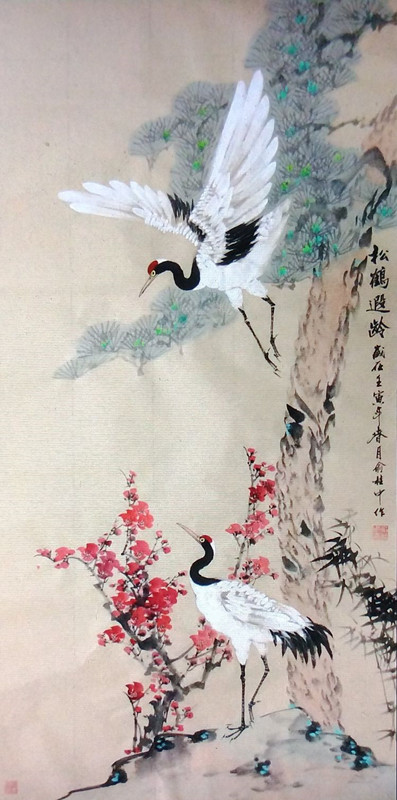 松鶴遐齡 歲在壬寅年春月俞桂中作